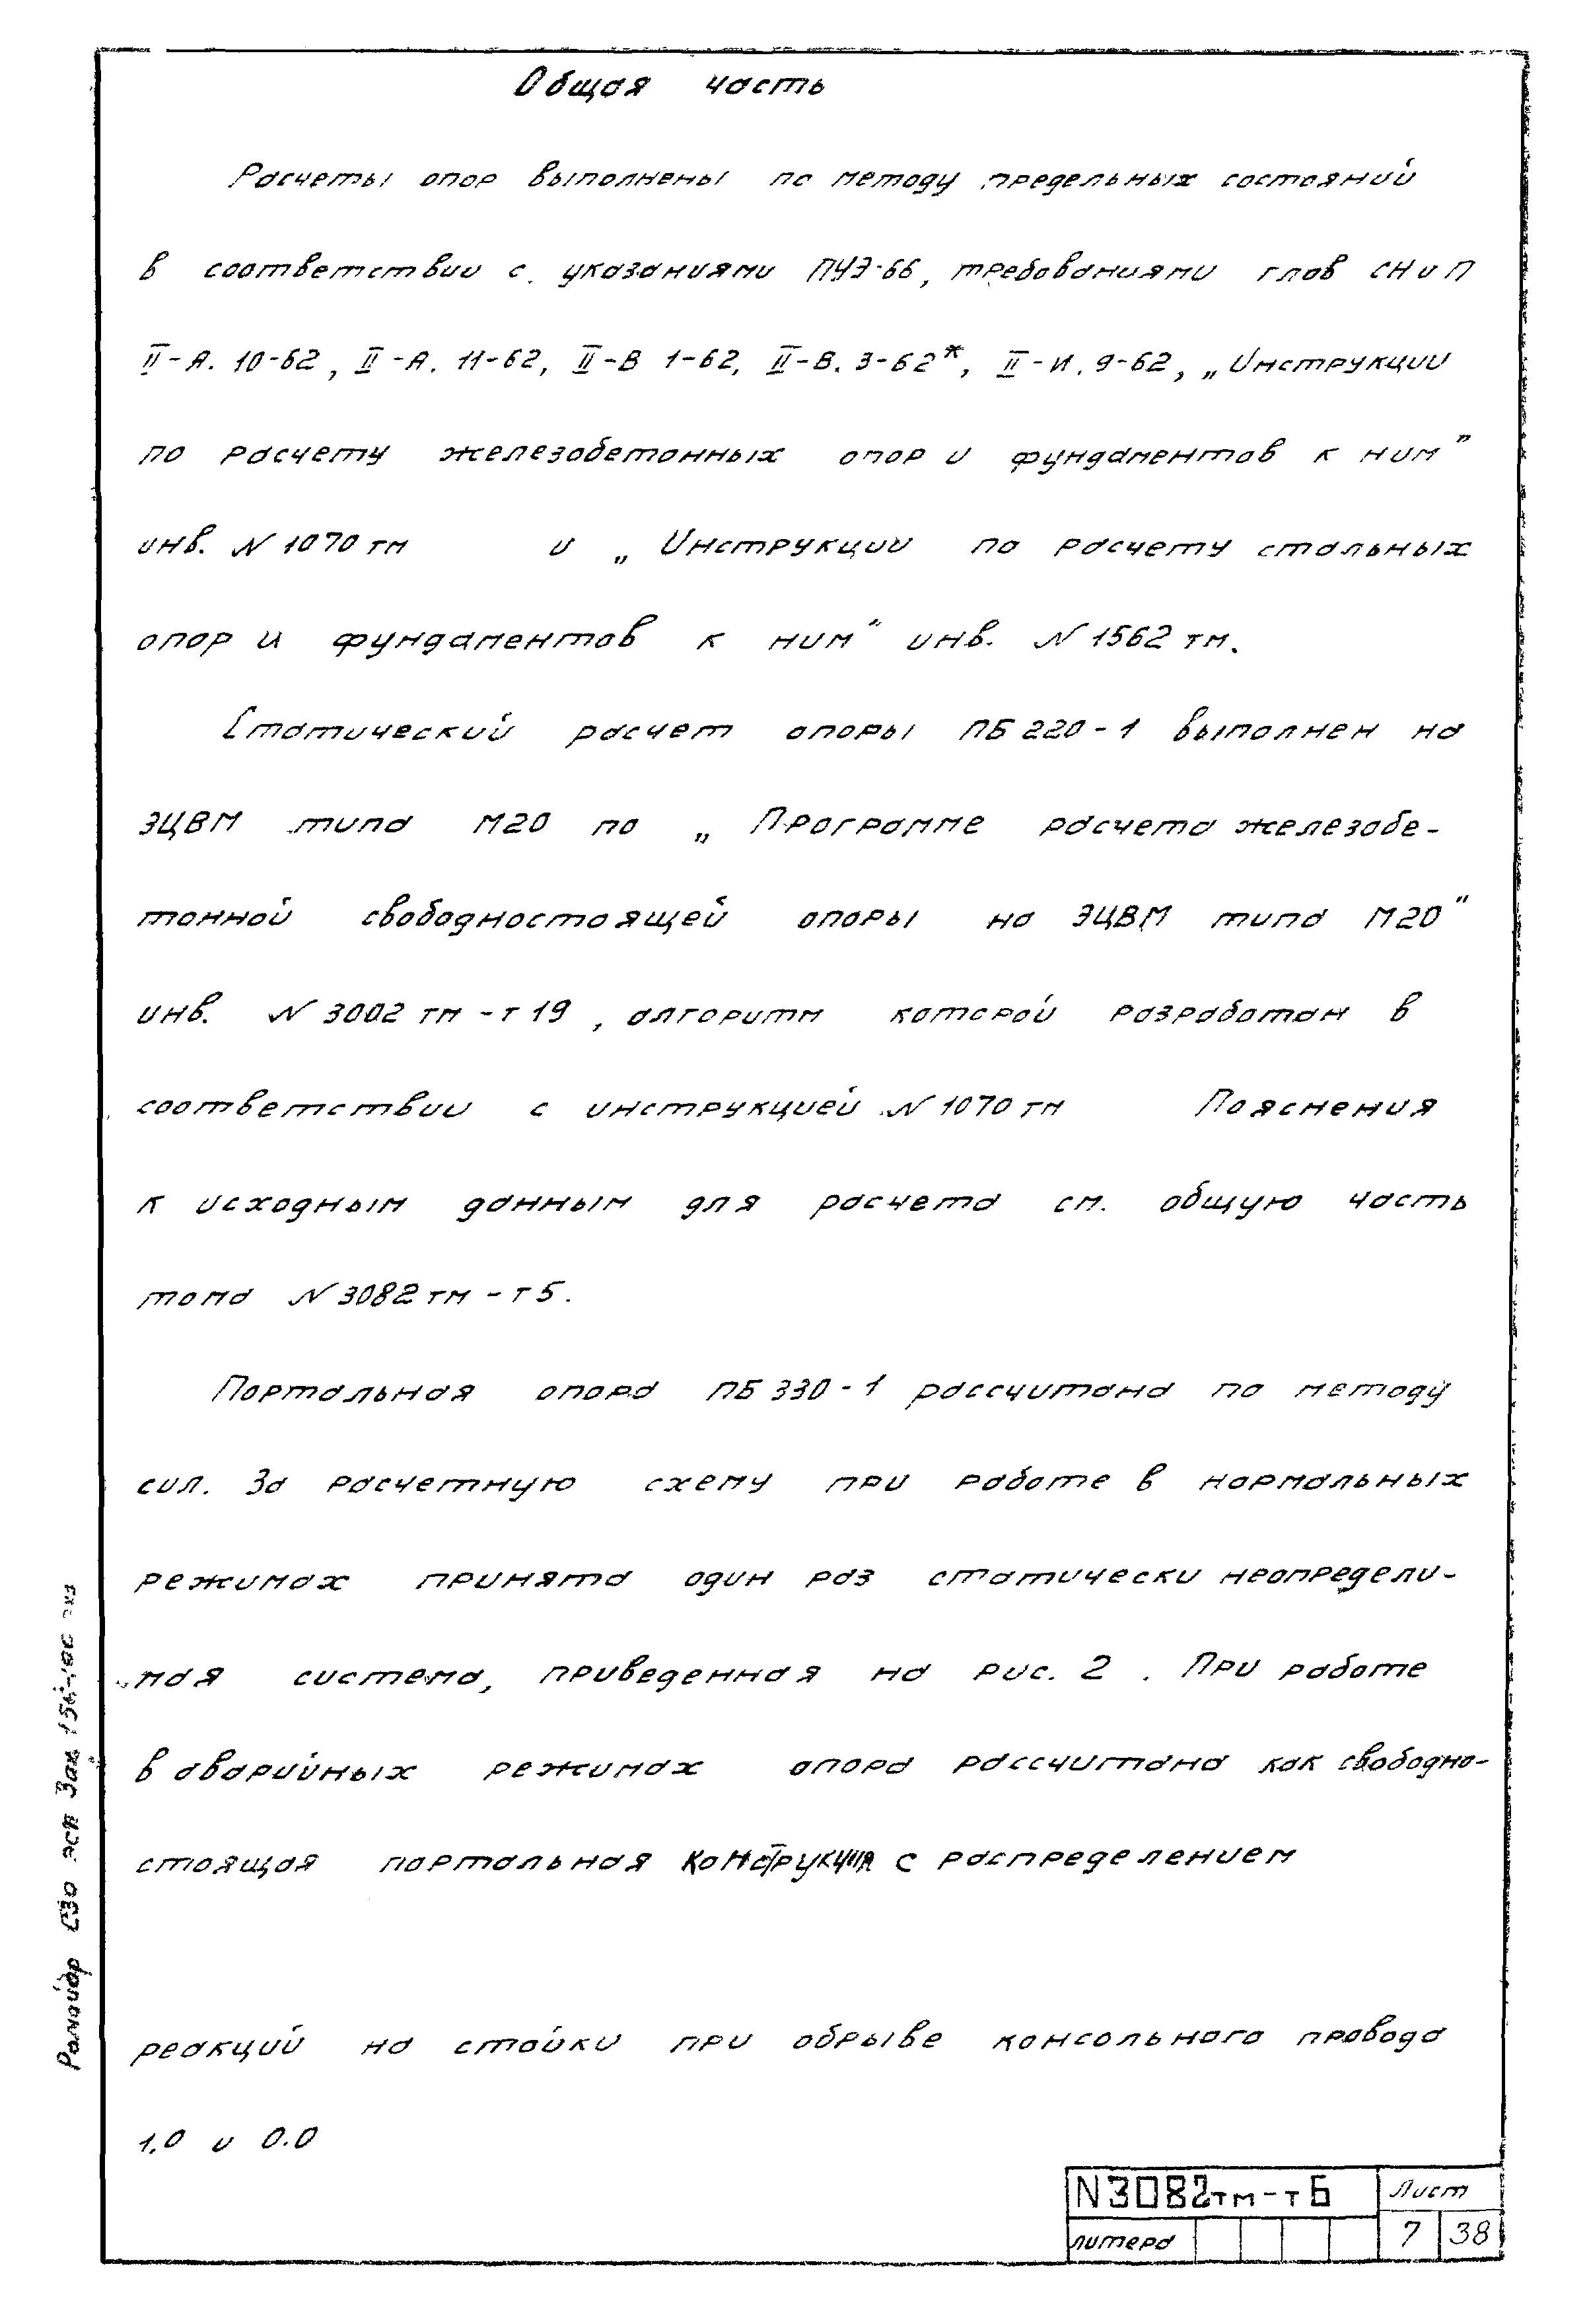 Общая часть
Расчеты опор выполнены по методу предельных состояний
в соответствии с указаниями ПУЭ-66, требованиями глав СНиП
II-А. 10-62, II-А. 11-62, II-В 1-62, II-В. 3-62*, II-И. 9-62, „Инструкции
по расчету железобетонных опор и фундаментов к ним”
инв. N 1070 тм и „Инструкции по расчету стальных
опор и фундаментов к ним” инв. N 1562 тм.
Статический расчет опоры ПБ 220-1 выполнен на
ЭЦВМ типа М20 по „Программе расчета железобе-
тонной свободностоящей опоры на ЭЦВМ типа М20”
инв. N 3002 тм-т 19, алгоритм которой разработан в
соответствии с инструкцией N 1070 тм Пояснения
к исходным данным для расчета см. общую часть
тома N 3082 тм-т 5.
Портальная опора ПБ 330-1 рассчитана по методу
сил. За расчетную схему при работе в нормальных
режимах принята один раз статически неопредели-
мая система, приведенная на рис. 2 . При работе
в аварийных режимах опора рассчитана как свободно-
стоящая портальная конструкция с распределением
реакций на стойки при обрыве консольного провода
1.0 и 0.0
N3082тм-т6 Лист
литера 7 38
СЗО ЭСП Зак